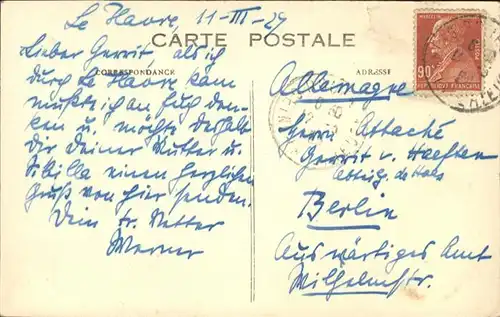 Le Havre, 11-III-29
CARTE POSTALE
CORRESPONDANCE
ADRESSE
Lieber Gerrit, als ich
durch Le Havre kam
mußte ich an Euch den-
ken u. möchte deshalb
Dir Deiner Mutter u.
Sibilla einen herzlichen
Gruß von hier senden.
Dein tr. Vetter
Werner
Allemagne
Herrn Attaché
Gerrit v. Haeften
Berlin
Auswärtiges Amt
Wilhelmstr.
90
POSTES
REPUBLIQUE FRANÇAISE